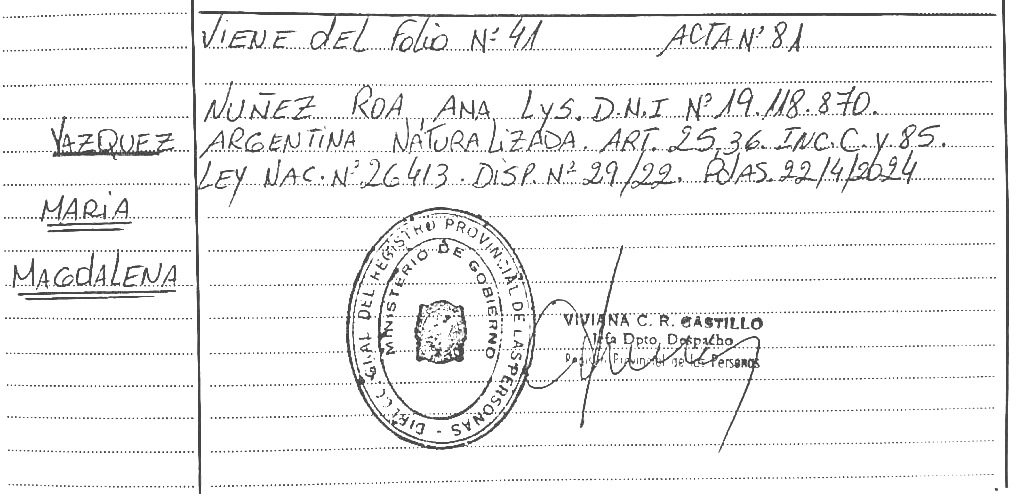 VIENE del Folio Nº 41 ACTA Nº 81
NUÑEZ ROA, ANA Lys. D.N.I Nº 19.118.870.
VAZQUEZ
ARGENTINA NATURALIZADA. ART. 25,36. INC.C. y 85.
LEY NAC. Nº 26413. DISP. Nº 29/22. PDAS. 22/4/2024
MARIA
MAGDALENA
DEL REGISTRO PROVINCIAL DE LAS PERSONAS
MINISTERIO DE GOBIERNO
VIVIANA C. R. CASTILLO
Jefa Dpto. Despacho
Registro Provincial de las Personas